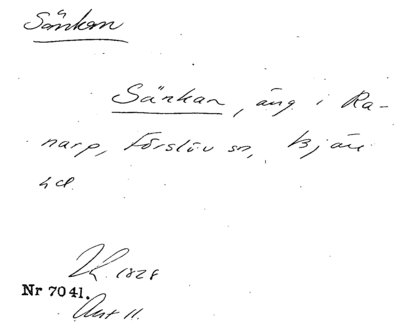 Sänkan
Sänkan, äng i Ra-
narp, Förslöv sn, Bjäre
hd.
1828
Nr 7041.
Akt 11.